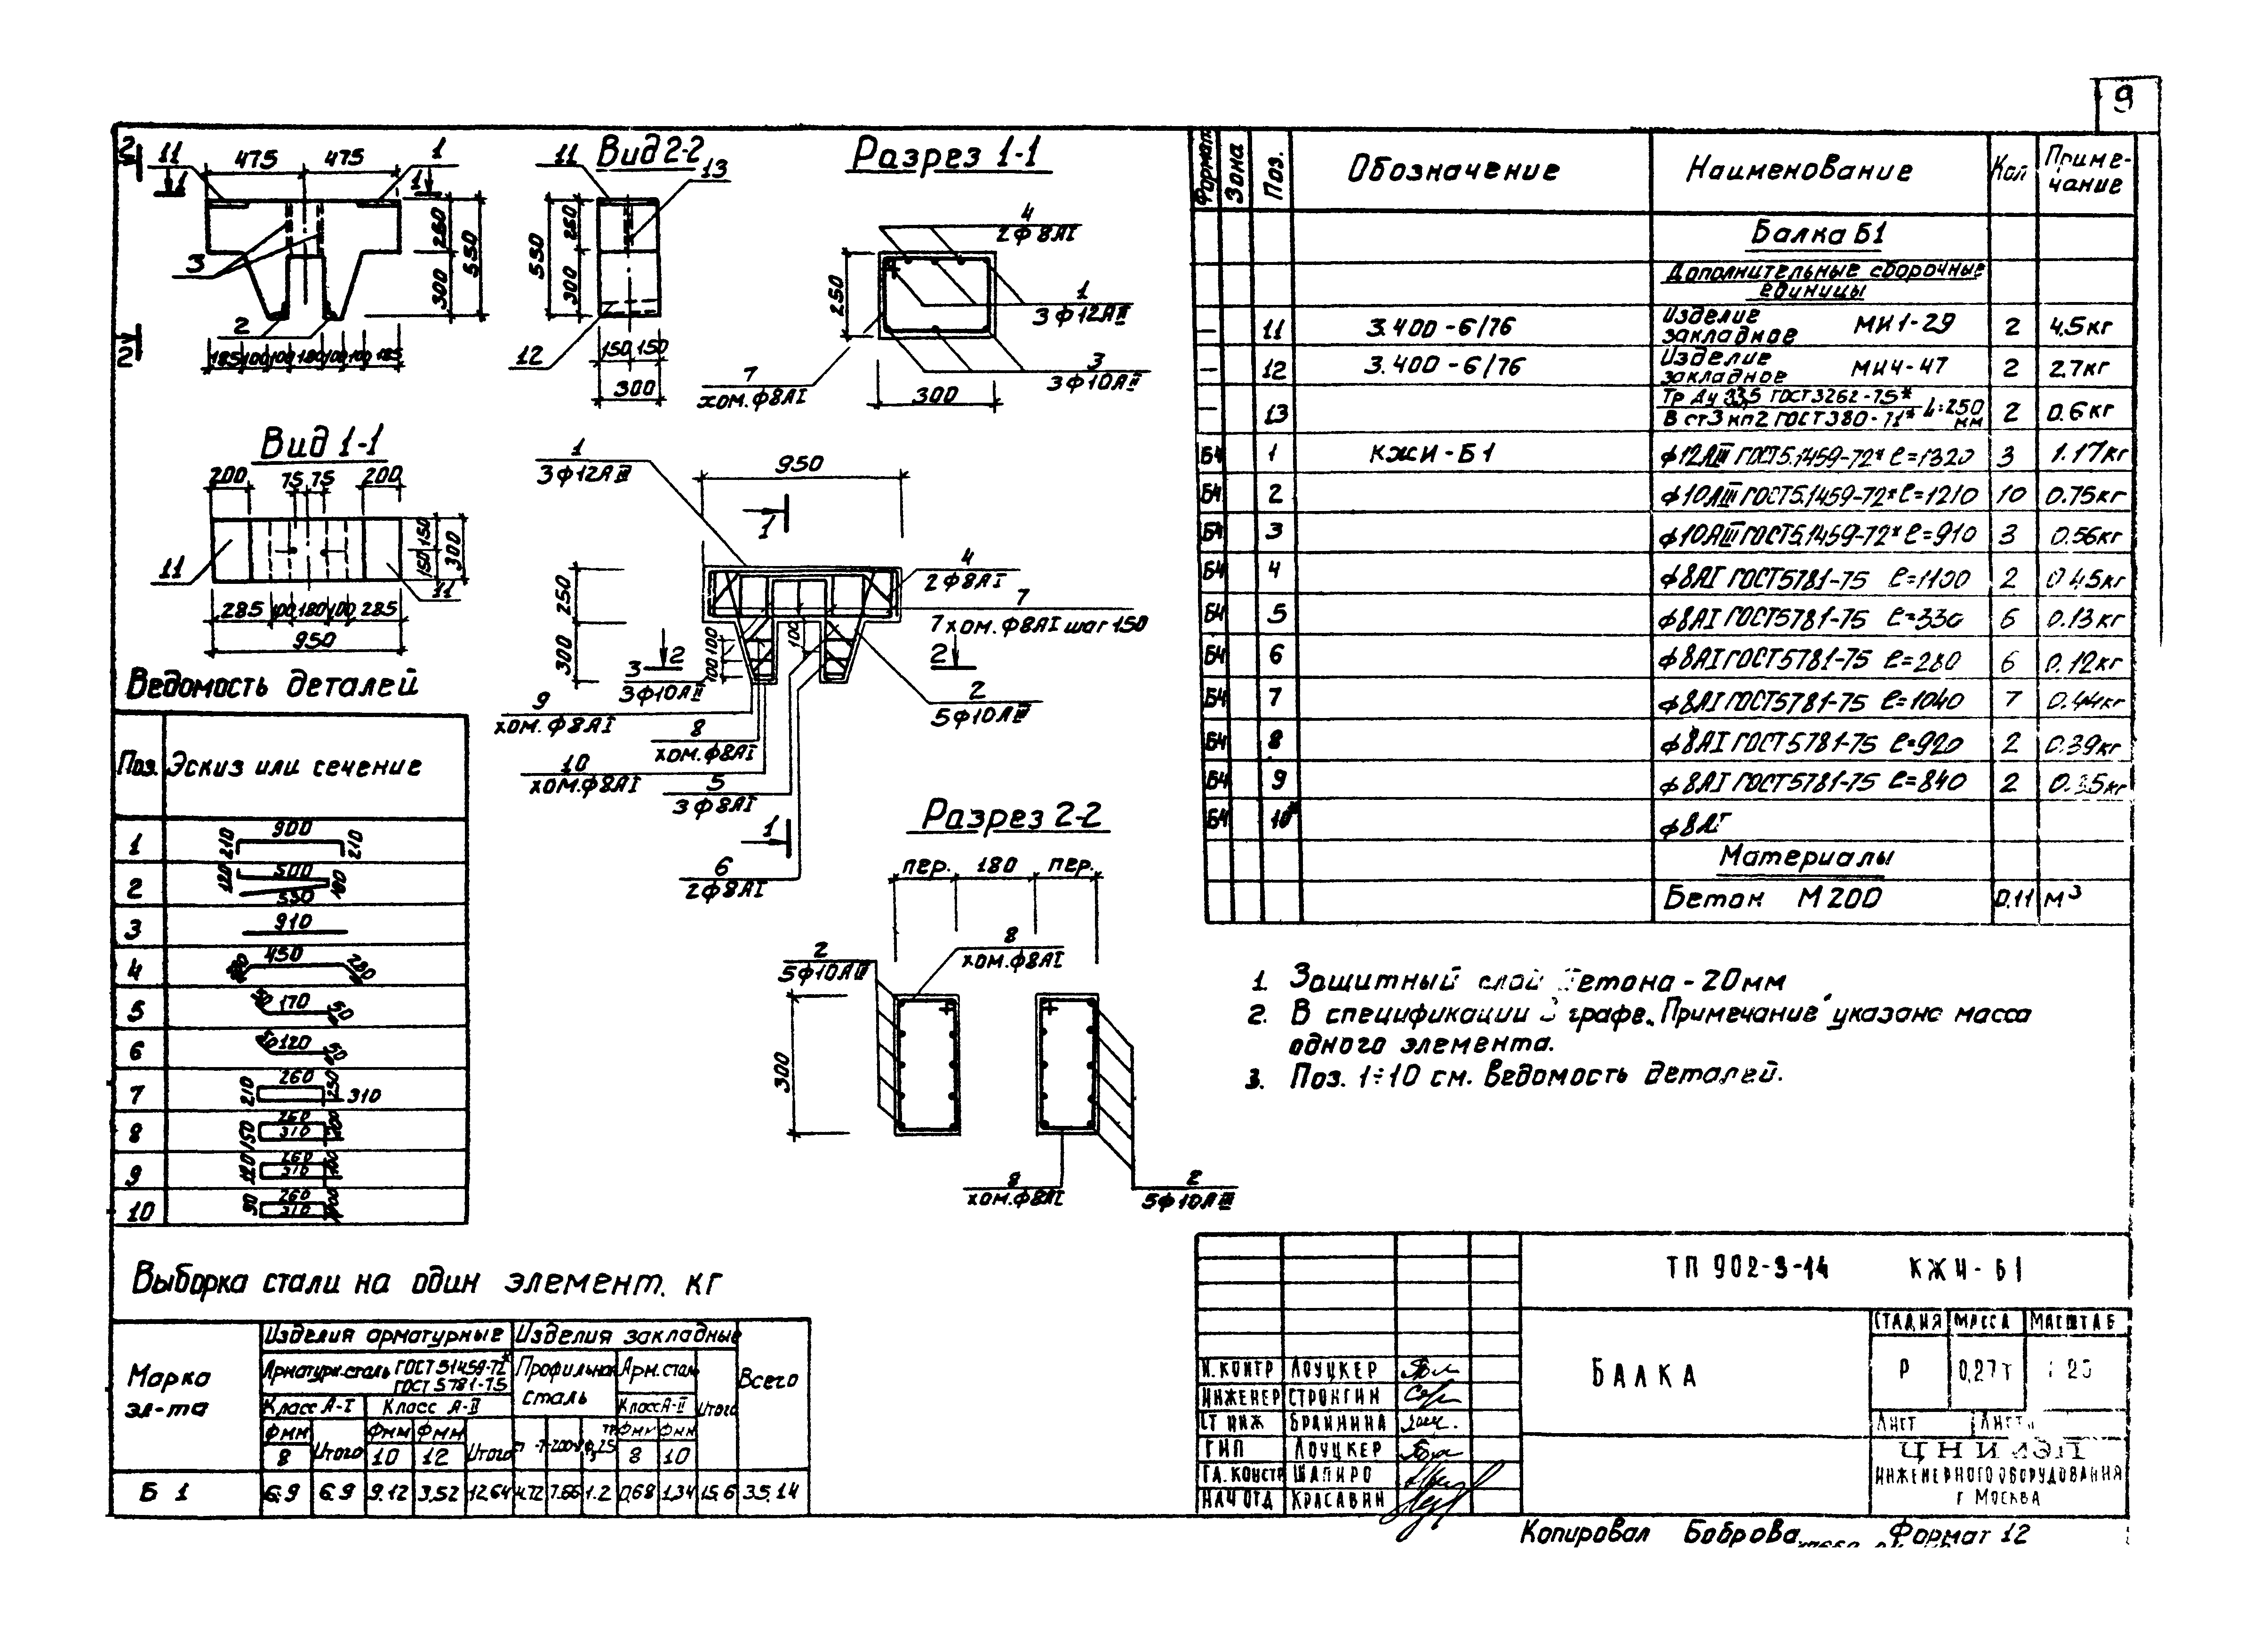 9
2
11
475
475
1
1
1
260
550
300
3
2
2
185 100 100 180 100 100 185
Вид 2-2
11
13
550
250
300
12
150 150
300
Разрез 1-1
4
2ф8АI
250
1
3ф12АIII
3
3ф10АIII
7
хом.ф8АI
300
Вид 1-1
200
75 75
200
150 150
300
11
11
285 100 180 100 285
950
1
3ф12АIII
950
1
4
2ф8АI
7
7хом.ф8АI шаг 150
250
300
100 100 100
100
3
3ф10АIII
2
2
2
5ф10АIII
9
хом.ф8АI
8
хом.ф8АI
10
хом.ф8АI
5
3ф8АI
1
6
2ф8АI
Разрез 2-2
пер. 180 пер.
8
хом.ф8АI
2
5ф10АIII
300
8
хом.ф8АI
2
5ф10АIII
Ведомость деталей
Поз. Эскиз или сечение
1 210 900 210
2 120 500 550 180
3 910
4 450 280
5 170
6 120
7 210 260 250 310
8 150 260 310 200
9 120 260 310
10 90 260 310
Выборка стали на один элемент. кг
Марка эл-та
Изделия арматурные
Изделия закладные
Всего
Арматурн.сталь ГОСТ 5.1459-72*
ГОСТ 5781-75
Профильная сталь
Арм.сталь
Итого
Класс А-I
Класс А-III
Класс А-II
Фмм Итого Фмм Фмм Итого Фмм Фмм
8 10 12 8 10
Б 1 6.9 6.9 9.12 3.52 12.64 4.72 7.66 1.2 0.68 1.34 15.6 35.14
Формат Зона Поз. Обозначение Наименование Кол Примечание
Балка Б1
Дополнительные сборочные
единицы
— 11 3.400-6/76 Изделие закладное МИ1-29 2 4.5кг
— 12 3.400-6/76 Изделие закладное МИ4-47 2 2.7кг
— 13 Тр Ду 33,5 ГОСТ 3262-75* / В ст3 кп2 ГОСТ 380-71* L=250 мм 2 0.6кг
Б4 1 КЖИ-Б1 ф12АIII ГОСТ5.1459-72* ℓ=1320 3 1.17кг
Б4 2 ф10АIII ГОСТ5.1459-72* ℓ=1210 10 0.75кг
Б4 3 ф10АIII ГОСТ5.1459-72* ℓ=910 3 0.56кг
Б4 4 ф8АI ГОСТ5781-75 ℓ=1100 2 0.45кг
Б4 5 ф8АI ГОСТ5781-75 ℓ=330 6 0.13кг
Б4 6 ф8АI ГОСТ5781-75 ℓ=280 6 0.12кг
Б4 7 ф8АI ГОСТ5781-75 ℓ=1040 7 0.44кг
Б4 8 ф8АI ГОСТ5781-75 ℓ=920 2 0.39кг
Б4 9 ф8АI ГОСТ5781-75 ℓ=840 2 0.35кг
Б4 10* ф8АI
Материалы
Бетон М200 0.11 м³
1. Защитный слой бетона - 20мм
2. В спецификации в графе „Примечание" указано масса
одного элемента.
3. Поз. 1÷10 см. Ведомость деталей.
ТП 902-3-14 КЖИ-Б1
БАЛКА
СТАДИЯ МАССА МАСШТАБ
Р 0,27т 1:25
Лист
Н.КОНТР ЛОУЦКЕР
ИНЖЕНЕР СТРОНГИН
СТ ИНЖ БРАЙНИНА
ГИП ЛОУЦКЕР
ГЛ.КОНСТР ШАПИРО
НАЧ ОТД КРАСАВИН
ЦНИИЭП
ИНЖЕНЕРНОГО ОБОРУДОВАНИЯ
г МОСКВА
Копировал Боброва Формат 12